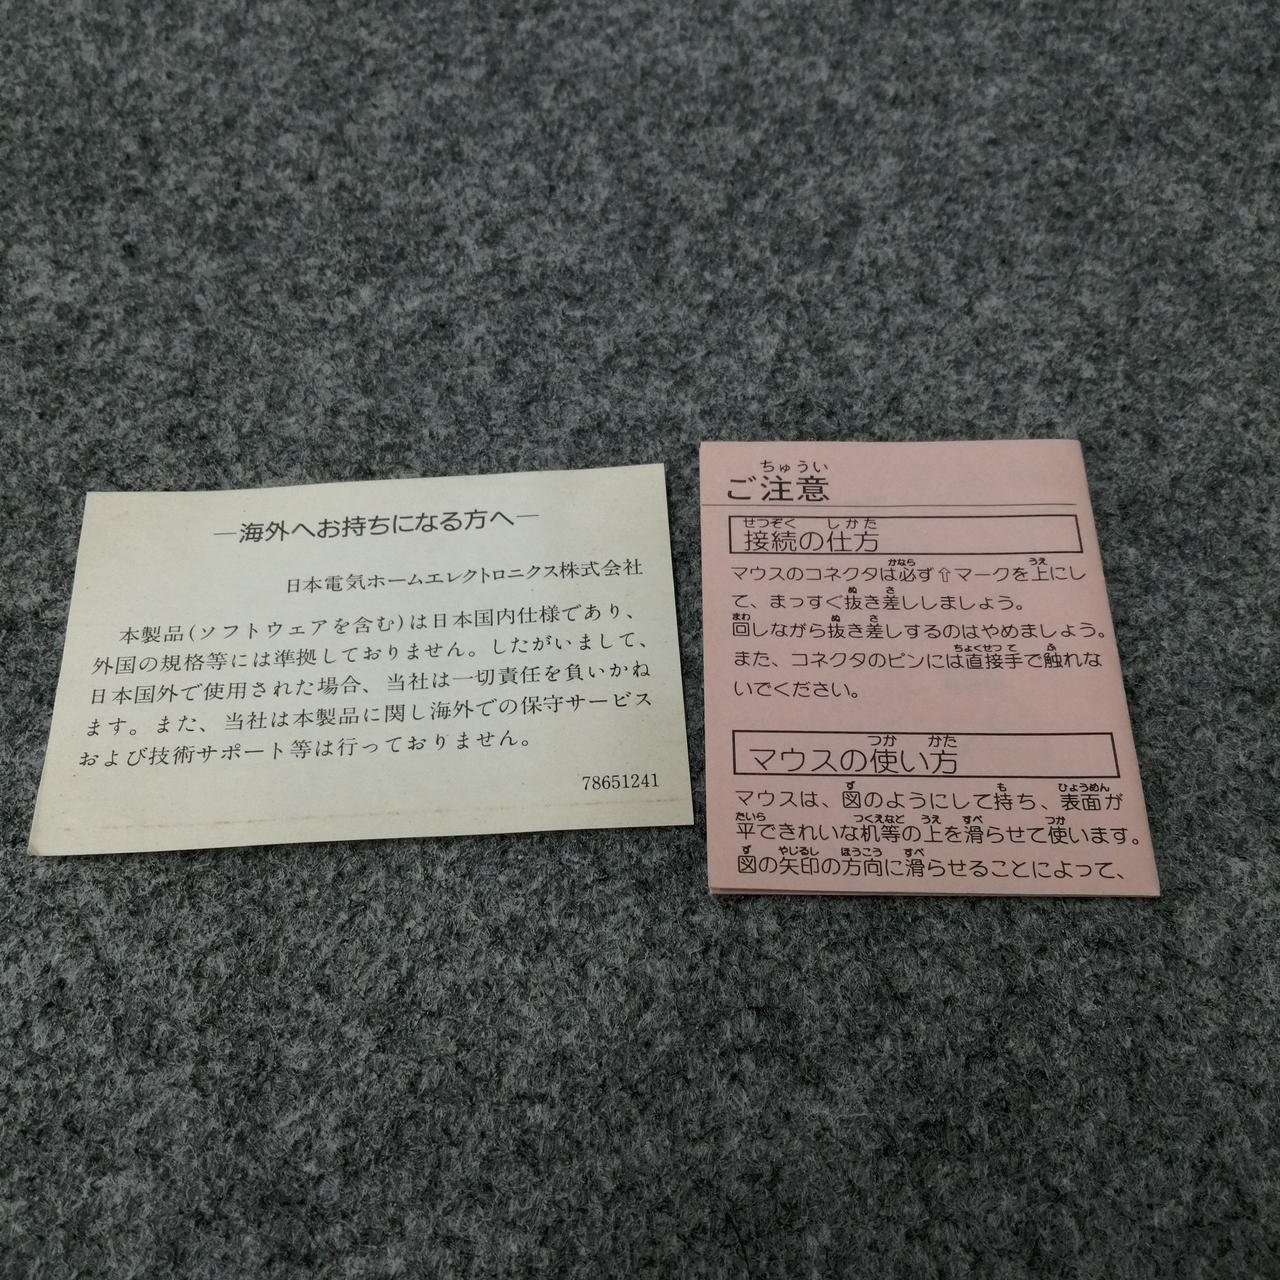 ―海外へお持ちになる方へ―
日本電気ホームエレクトロニクス株式会社
本製品(ソフトウェアを含む)は日本国内仕様であり、
外国の規格等には準拠しておりません。したがいまして、
日本国外で使用された場合、当社は一切責任を負いかね
ます。また、当社は本製品に関し海外での保守サービス
および技術サポート等は行っておりません。
78651241
ちゅうい
ご注意
せつぞく しかた
接続の仕方
かなら うえ
マウスのコネクタは必ず⇧マークを上にし
ぬ さ
て、まっすぐ抜き差ししましょう。
まわ ぬ さ
回しながら抜き差しするのはやめましょう。
ちょくせつ て ふ
また、コネクタのピンには直接手で触れな
いでください。
つか かた
マウスの使い方
ず も ひょうめん
マウスは、図のようにして持ち、表面が
たいら つくえなど うえ すべ つか
平できれいな机等の上を滑らせて使います。
ず やじるし ほうこう すべ
図の矢印の方向に滑らせることによって、